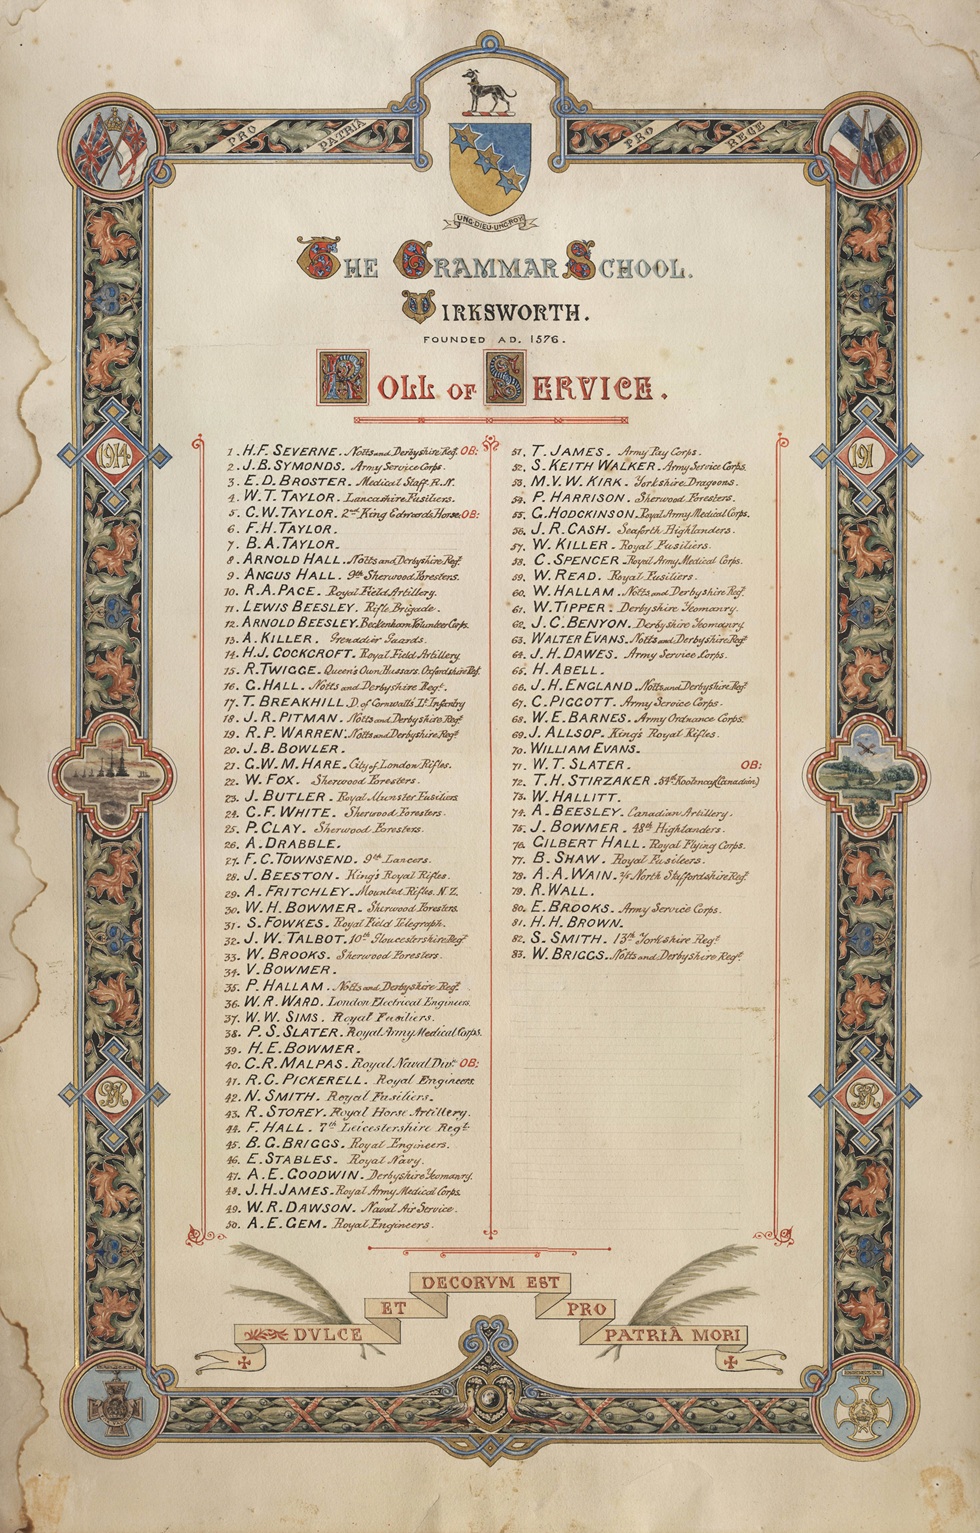 PRO PATRIA
PRO REGE
UNG·DIEU·UNG·ROY
THE GRAMMAR SCHOOL.
WIRKSWORTH.
FOUNDED AD. 1576.
ROLL OF SERVICE.
1914
191
1. H.F. SEVERNE. Notts and Derbyshire Regt. OB:
2. J.B. SYMONDS. Army Service Corps.
3. E.D. BROSTER. Medical Staff. R.N.
4. W.T. TAYLOR. Lancashire Fusiliers.
5. C.W. TAYLOR. 2nd King Edwards Horse: OB:
6. F.H. TAYLOR.
7. B.A. TAYLOR.
8. ARNOLD HALL. Notts and Derbyshire Regt.
9. ANGUS HALL. 9th Sherwood Foresters.
10. R.A. PACE. Royal Field Artillery.
11. LEWIS BEESLEY. Rifle Brigade.
12. ARNOLD BEESLEY. Beckenham Volunteer Corps.
13. A. KILLER. Grenadier Guards.
14. H.J. COCKCROFT. Royal Field Artillery
15. R. TWIGGE. Queen's Own Hussars. Oxfordshire Regt.
16. G. HALL. Notts and Derbyshire Regt.
17. T. BREAKHILL. D. of Cornwall's Lt Infantry
18. J.R. PITMAN. Notts and Derbyshire Regt
19. R.P. WARREN. Notts and Derbyshire Regt
20. J.B. BOWLER.
21. G.W.M. HARE. City of London Rifles.
22. W. FOX. Sherwood Foresters.
23. J. BUTLER. Royal Munster Fusiliers
24. G.F. WHITE. Sherwood Foresters.
25. P. CLAY. Sherwood Foresters.
26. A. DRABBLE.
27. F.C. TOWNSEND. 9th Lancers.
28. J. BEESTON. King's Royal Rifles.
29. A. FRITCHLEY. Mounted Rifles. N.Z.
30. W.H. BOWMER. Sherwood Foresters.
31. S. FOWKES. Royal Field Telegraph.
32. J.W. TALBOT. 10th Gloucestershire Regt
33. W. BROOKS. Sherwood Foresters.
34. V. BOWMER.
35. P. HALLAM. Notts and Derbyshire Regt
36. W.R. WARD. London Electrical Engineers.
37. W.W. SIMS. Royal Fusiliers.
38. P.S. SLATER. Royal Army Medical Corps.
39. H.E. BOWMER.
40. C.R. MALPAS. Royal Naval Divn. OB:
41. R.C. PICKERELL. Royal Engineers.
42. N. SMITH. Royal Fusiliers.
43. R. STOREY. Royal Horse Artillery.
44. F. HALL. 7th Leicestershire Regt.
45. B.G. BRIGGS. Royal Engineers.
46. E. STABLES. Royal Navy.
47. A.E. GOODWIN. Derbyshire Yeomanry.
48. J.H. JAMES. Royal Army Medical Corps.
49. W.R. DAWSON. Naval Air Service.
50. A.E. GEM. Royal Engineers.
51. T. JAMES. Army Pay Corps.
52. S. KEITH WALKER. Army Service Corps.
53. M.V.W. KIRK. Yorkshire Dragoons.
54. P. HARRISON. Sherwood Foresters.
55. G. HODGKINSON. Royal Army Medical Corps.
56. J.R. CASH. Seaforth Highlanders.
57. W. KILLER. Royal Fusiliers.
58. C. SPENCER. Royal Army Medical Corps.
59. W. READ. Royal Fusiliers.
60. W. HALLAM. Notts and Derbyshire Regt.
61. W. TIPPER. Derbyshire Yeomanry.
62. J.C. BENYON. Derbyshire Yeomanry.
63. WALTER EVANS. Notts and Derbyshire Regt
64. J.H. DAWES. Army Service Corps.
65. H. ABELL.
66. J.H. ENGLAND. Notts and Derbyshire Regt
67. C. PIGGOTT. Army Service Corps.
68. W.E. BARNES. Army Ordnance Corps.
69. J. ALLSOP. King's Royal Rifles.
70. WILLIAM EVANS.
71. W.T. SLATER. OB:
72. T.H. STIRZAKER. 54th Kootenay (Canadian)
73. W. HALLITT.
74. A. BEESLEY. Canadian Artillery.
75. J. BOWMER. 48th Highlanders.
76. GILBERT HALL. Royal Flying Corps.
77. B. SHAW. Royal Fusileers.
78. A.A. WAIN. 2/5 North Staffordshire Regt
79. R. WALL.
80. E. BROOKS. Army Service Corps.
81. H.H. BROWN.
82. S. SMITH. 13th Yorkshire Regt
83. W. BRIGGS. Notts and Derbyshire Regt
DVLCE ET DECORVM EST PRO PATRIA MORI